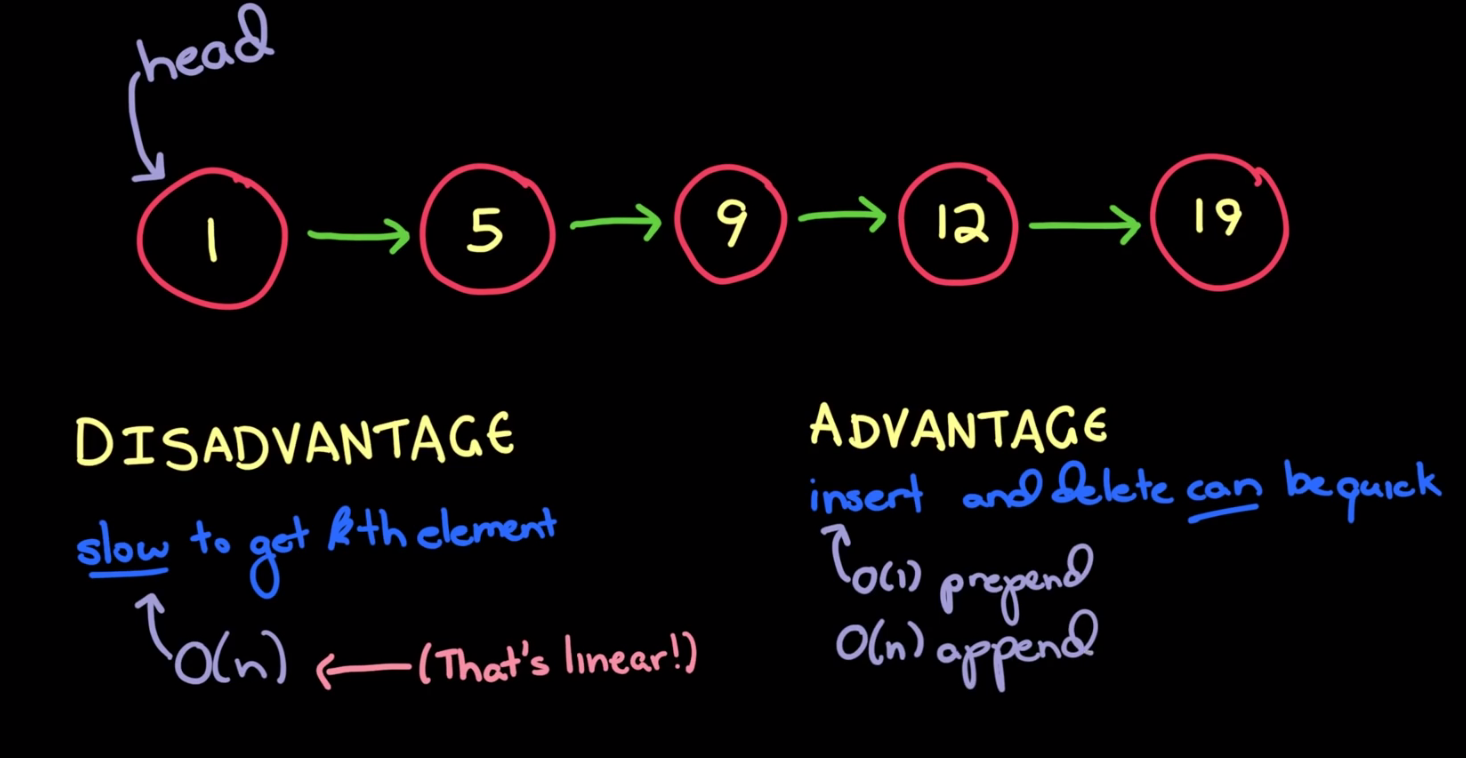 head
1 5 9 12 19
DISADVANTAGE
slow to get kth element
O(n) (That's linear!)
ADVANTAGE
insert and delete can be quick
O(1) prepend
O(n) append